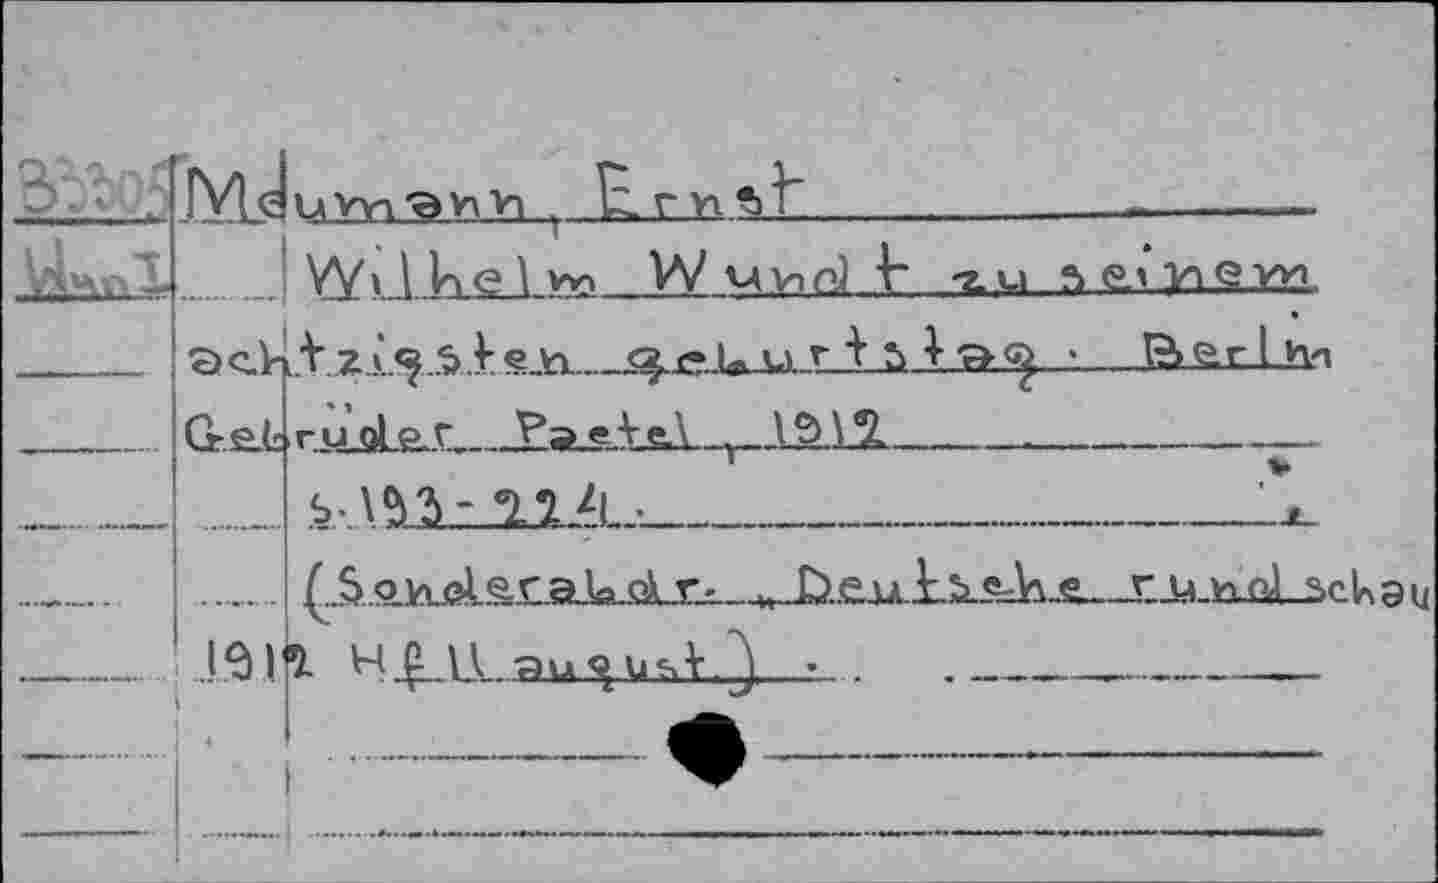 Meumann, Ernst
Wilhelm Wundt zu seinem
achtzigsten geburtstag. Berlin
Gebrüder Paetel, 1912
s. 193-224.
(Sonderabdr. „ Deutsche rundschau
1912 Hft 11 august).